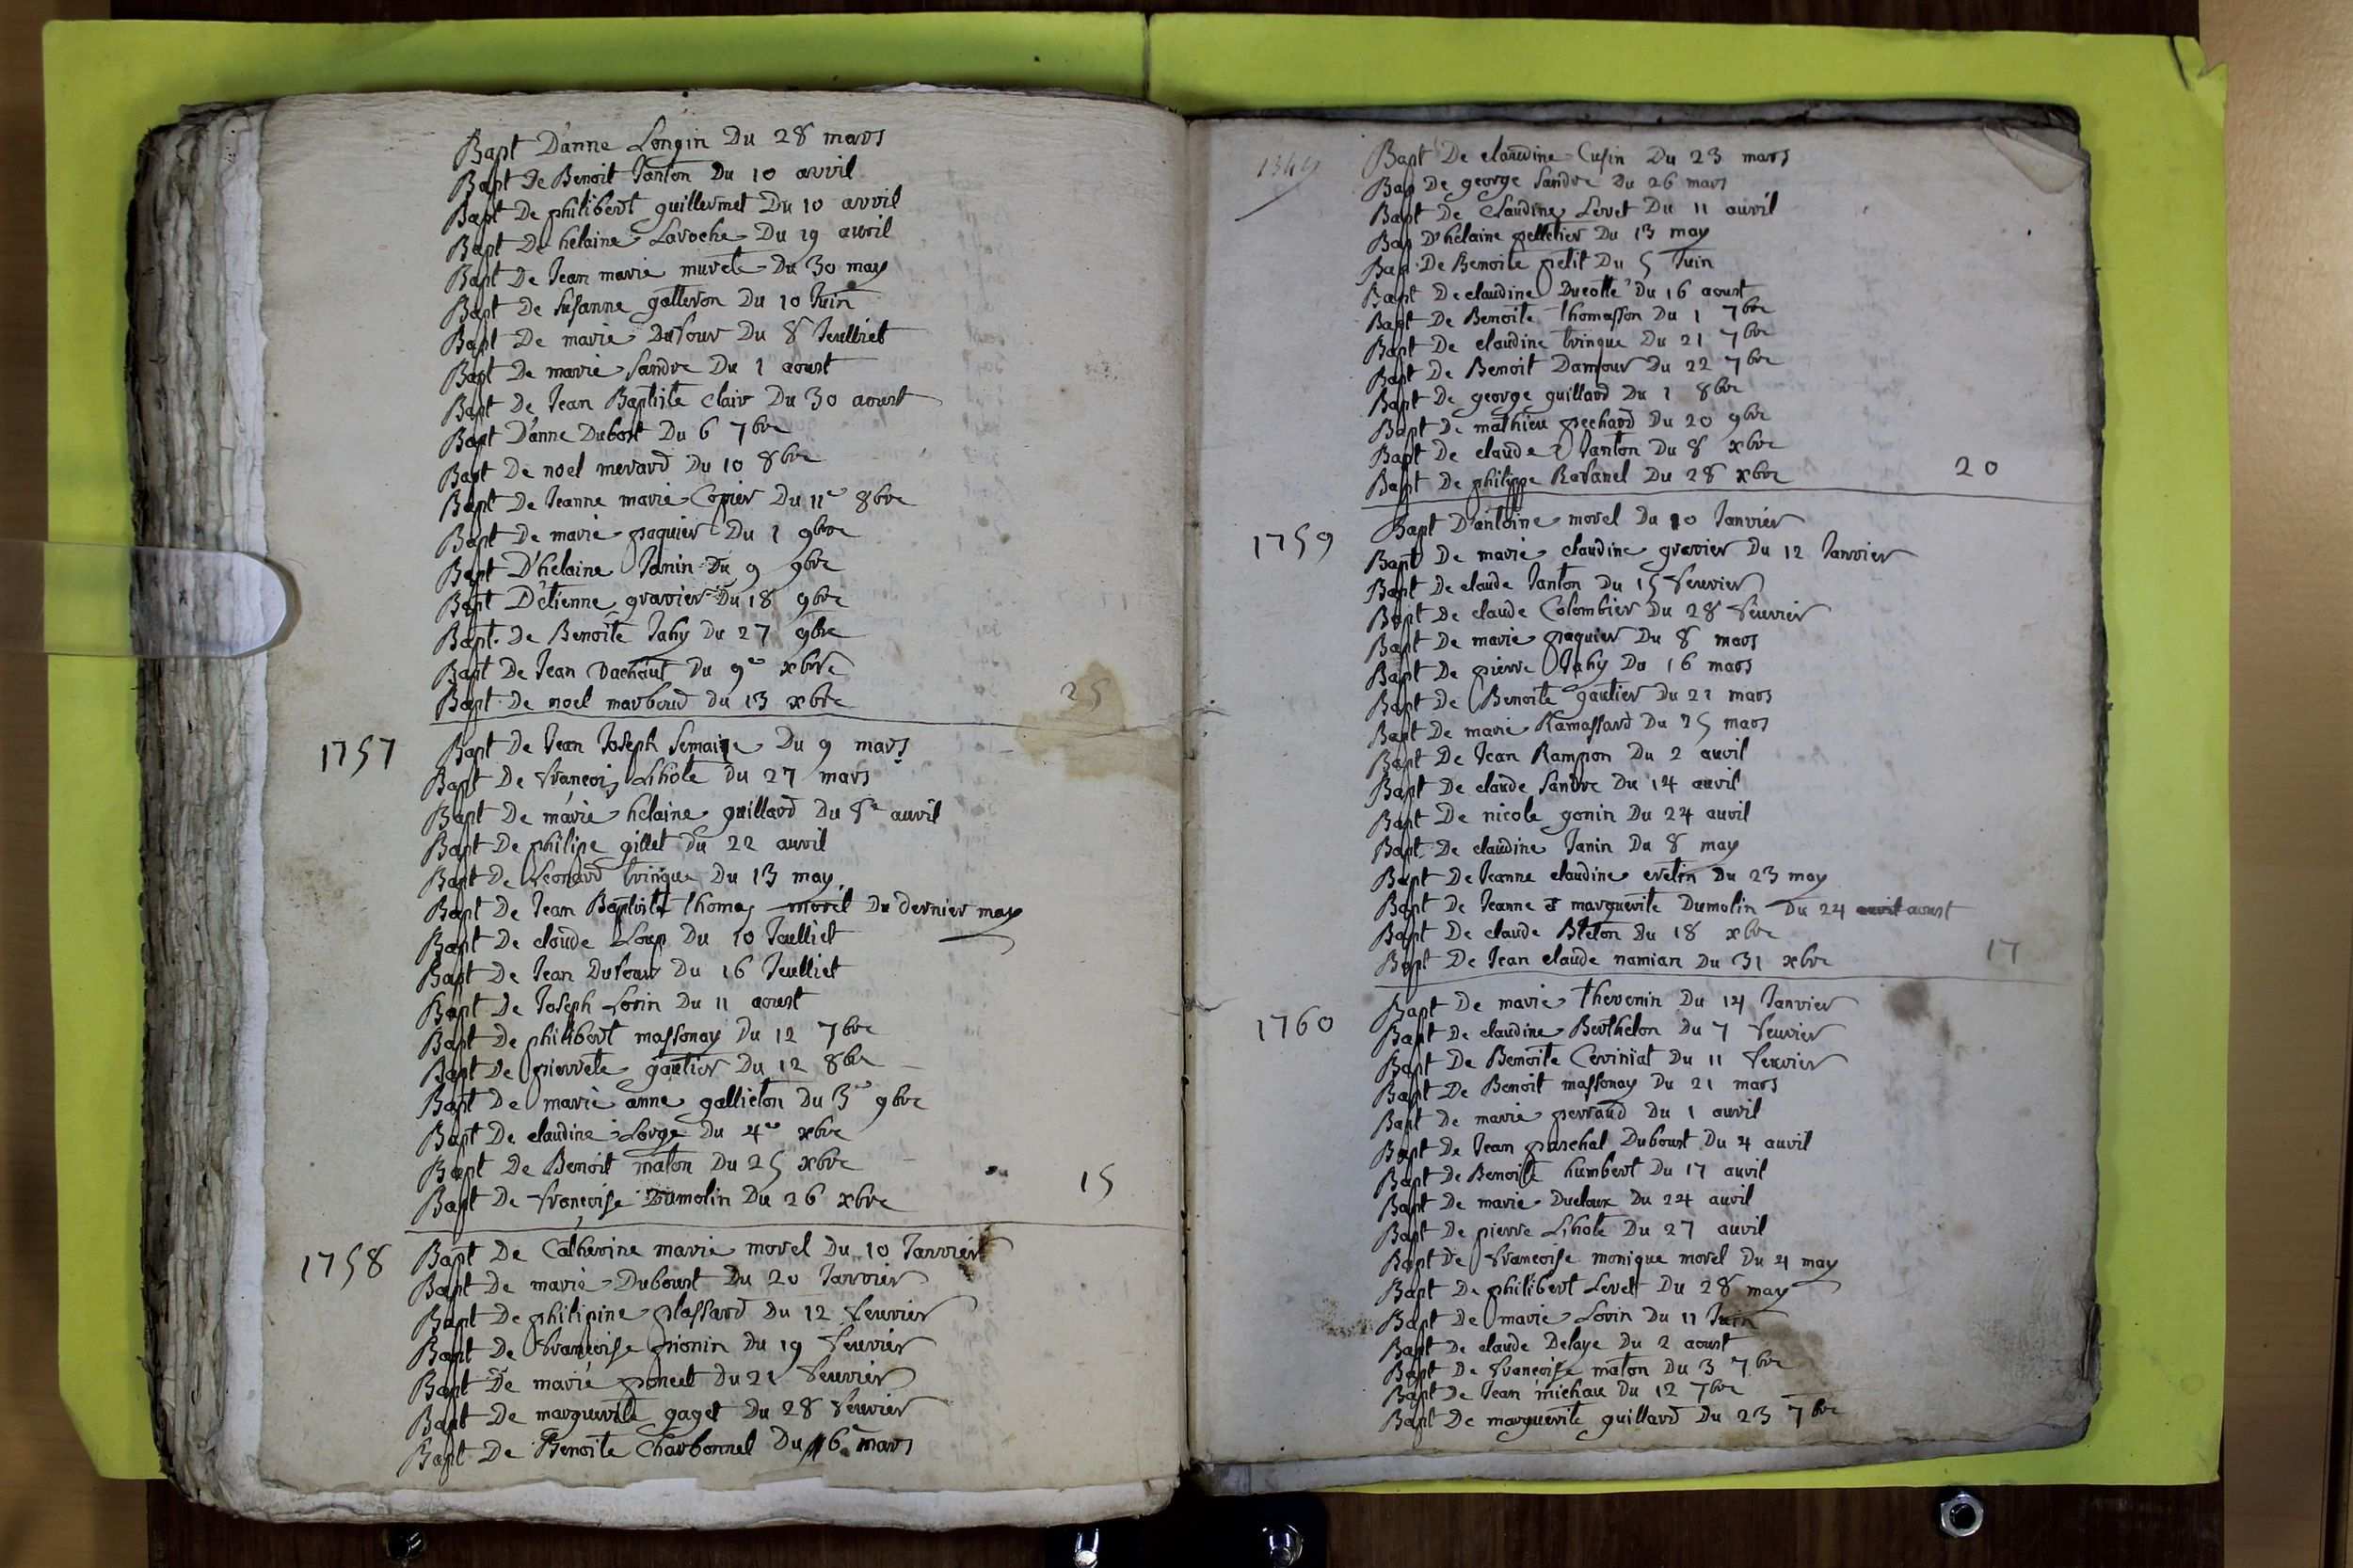 Bapt D'anne Longin Du 28 mars
Bapt De Benoit Janton Du 10 avril
Bapt De philibert guillermet Du 10 avril
Bapt De helaine Laroche Du 19 avril
Bapt De Jean marie murete Du 30 may
Bapt De Susanne galleron Du 10 Juin
Bapt De marie Dufour Du 8 Jeulliet
Bapt De marie Sandre Du 1 aoust
Bapt De Jean Baptiste clair Du 30 aoust
Bapt D'anne Dubost Du 6 7bre
Bapt De noel merard Du 10 8bre
Bapt De Jeanne marie Copier Du 11e 8bre
Bapt De marie paquier Du 1 9bre
Bapt D'helaine Janin Du 9 9bre
Bapt D'étienne gravier Du 18 9bre
Bapt. De Benoite Jahy Du 27 9bre
Bapt De Jean Dachaut Du 9e xbre
Bapt De noel marboud du 13 xbre 25
1757 Bapt De Jean Joseph Semaine Du 9 mars
Bapt De françois Lihote Du 27 mars
Bapt De marie helaine guillard Du 8e auvil
Bapt De philipe gillet Du 22 auvil
Bapt De Leonard tringue Du 13 may
Bapt De Jean Baptiste thomas morel Du dernier may
Bapt De claude Loup Du 10 Jeulliet
Bapt De Jean Dufour Du 16 Jeulliet
Bapt De Joseph Lorin Du 11 aoust
Bapt De philibert massonay Du 12 7bre
Bapt De pierrete gautier Du 12 8bre
Bapt De marie anne gallieton Du 3e 9bre
Bapt De claudine Lorge Du 4e xbre
Bapt De Benoit maton Du 25 xbre
Bapt De françoise Dumolin Du 26 xbre 15
1758 Bapt De Catherine marie morel Du 10 Janvier
Bapt De marie Dubourt Du 20 Janvier
Bapt De philipine plassard Du 12 feuvrier
Bapt De françoise pionin Du 19 feuvrier
Bapt De marie poncet Du 21 feuvrier
Bapt De marguerite gaget Du 28 feuvrier
Bapt De Benoite Charbonnel Du 16 mars
Bapt De claudine Cusin Du 23 mars
Bap De george Sandre Du 26 mars
Bapt De Claudine Levet Du 11 auvil
Bap D'helaine pelletier Du 13 may
Bap De Benoite petit Du 5 Juin
Bapt De claudine Ducotte Du 16 aoust
Bapt De Benoite thomasson Du 1 7bre
Bapt De claudine tringue Du 21 7bre
Bapt De Benoit Damour Du 22 7bre
Bapt De george guillard Du 1 8bre
Bapt De mathieu pechard Du 20 9bre
Bapt De claude Janton Du 8 xbre
Bapt De philippe Ravanel Du 28 xbre 20
1759 Bapt D'antoine morel Du 10 Janvier
Bapt De marie claudine gravier Du 12 Janvier
Bapt De claude Janton Du 15 feuvrier
Bapt De claude Colombier Du 28 feuvrier
Bapt De marie paquier Du 8 mars
Bapt De pierre Jahy Du 16 mars
Bapt De Benoite gautier Du 21 mars
Bapt De marie Ramassard Du 25 mars
Bapt De Jean Rampon Du 2 auvil
Bapt De claude Sandre Du 14 auvil
Bapt De nicole gonin Du 24 auvil
Bapt De claudine Janin Du 8 may
Bapt De Jeanne claudine evelin Du 23 may
Bapt De Jeanne et marguerite Dumolin Du 24 auvil aoust
Bapt De claude Bleton Du 18 xbre
Bapt De Jean claude namian Du 31 xbre 17
1760 Bapt De marie thevenin Du 14 Janvier
Bapt De claudine Berthelon Du 7 feuvrier
Bapt De Benoite Ceviniat Du 11 feuvrier
Bapt De Benoit massonay Du 21 mars
Bapt De marie perraud Du 1 auvil
Bapt De Jean paschal Dubourt Du 4 auvil
Bapt De Benoite humbert Du 17 auvil
Bapt De marie Ducloux Du 24 auvil
Bapt De pierre Lihote Du 27 auvil
Bapt De françoise monique morel Du 4 may
Bapt De philibert Levet Du 28 may
Bapt De marie Lorin Du 11 Juin
Bapt De claude Delaye Du 2 aoust
Bapt De françoise maton Du 3 7bre
Bapt De Jean michau Du 12 7bre
Bapt De marguerite guillard Du 23 7bre